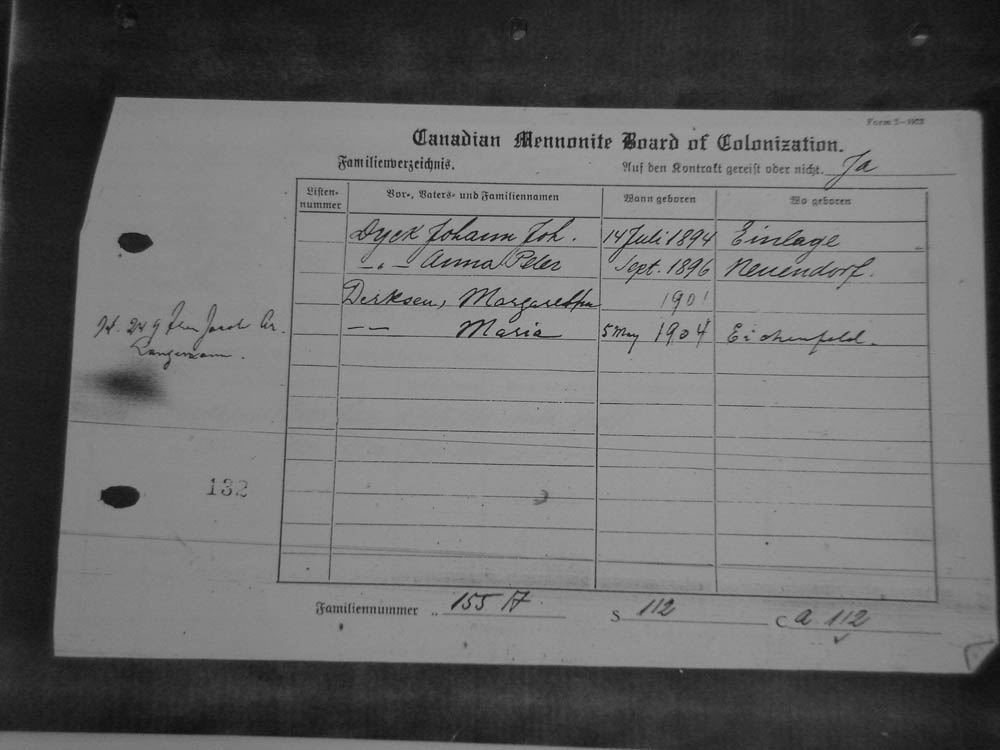 Form 2—1923
Canadian Mennonite Board of Colonization.
Familienverzeichnis. Auf den Kontrakt gereist oder nicht. Ja
Listen-nummer Vor-, Vaters- und Familiennamen Wann geboren Wo geboren
Dyck Johann Joh. 14 Juli 1894 Einlage
—"— Anna Peter Sept. 1896 Neuendorf.
Derksen, Margareth 1901
—— Maria 5 May 1904 Eichenfeld.
132
Familiennummer .. 155 A. S 112 C a 112